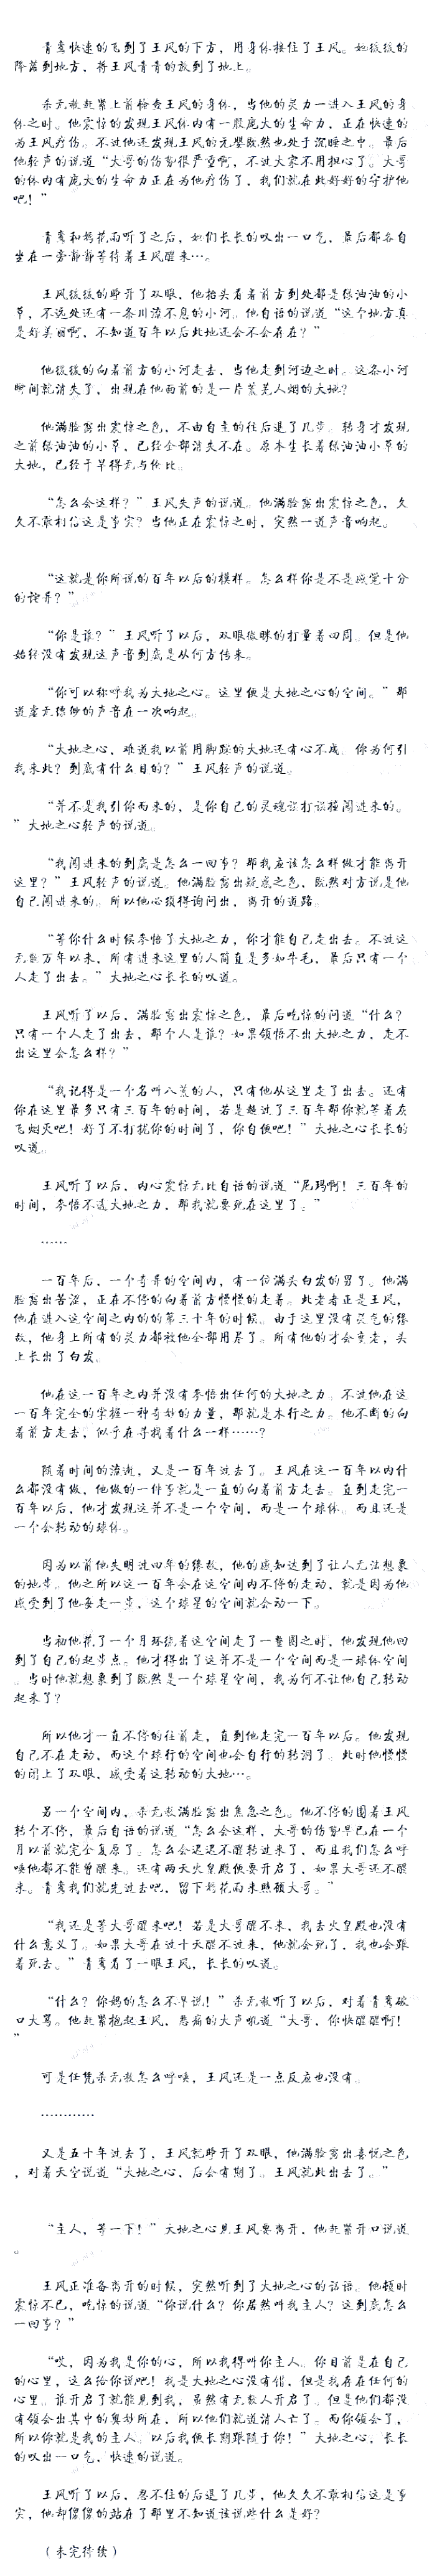 青鸾快速的飞到了王风的下方，用身体接住了王风。她缓缓的
降落到地方，将王风青青的放到了地上。
杀无赦赶紧上前检查王风的身体，当他的灵力一进入王风的身
体之时。他震惊的发现王风体内有一股庞大的生命力，正在快速的
为王风疗伤。不过他还发现王风的元婴既然也处于沉睡之中。最后
他轻声的说道“大哥的伤势很严重啊，不过大家不用担心了。大哥
的体内有庞大的生命力正在为他疗伤了，我们就在此好好的守护他
吧！”
青鸾和刬花雨听了之后，她们长长的叹出一口气，最后都各自
坐在一旁静静等待着王风醒来…。
王风缓缓的睁开了双眼，他抬头看着前方到处都是绿油油的小
草，不远处还有一条川流不息的小河。他自语的说道“这个地方真
是好美丽啊，不知道百年以后此地还会不会存在？”
他缓缓的向着前方的小河走去，当他走到河边之时。这条小河
瞬间就消失了，出现在他面前的是一片荒芜人烟的大地？
他满脸露出震惊之色，不由自主的往后退了几步。转身才发现
之前绿油油的小草，已经全部消失不在。原本生长着绿油油小草的
大地，已经干旱得无与伦比。
“怎么会这样？”王风失声的说道。他满脸露出震惊之色，久
久不敢相信这是事实？当他正在震惊之时，突然一道声音响起。
“这就是你所说的百年以后的模样。怎么样你是不是感觉十分
的诧异？”
“你是谁？”王风听了以后，双眼微眯的打量着四周。但是他
始终没有发现这声音到底是从何方传来。
“你可以称呼我为大地之心。这里便是大地之心的空间。”那
道虚无缥缈的声音在一次响起。
“大地之心，难道我以前用脚踩的大地还有心不成。你为何引
我来此？到底有什么目的？”王风轻声的说道。
“并不是我引你而来的，是你自己的灵魂误打误撞闯进来的。
”大地之心轻声的说道。
“我闯进来的到底是怎么一回事？那我应该怎么样做才能离开
这里？”王风轻声的说道。他满脸露出疑惑之色，既然对方说是他
自己闯进来的。所以他必须得询问出，离开的道路。
“等你什么时候参悟了大地之力，你才能自己走出去。不过这
无数万年以来，所有进来这里的人简直是多如牛毛，最后只有一个
人走了出去。”大地之心长长的叹道。
王风听了以后，满脸露出震惊之色，最后吃惊的问道“什么？
只有一个人走了出去，那个人是谁？如果领悟不出大地之力，走不
出这里会怎么样？”
“我记得是一个名叫八荒的人，只有他从这里走了出去。还有
你在这里最多只有三百年的时间，若是超过了三百年那你就等着灰
飞烟灭吧！好了不打扰你的时间了，你自便吧！”大地之心长长的
叹道。
王风听了以后，内心震惊无比自语的说道“尼玛啊！三百年的
时间，参悟不透大地之力，那我就要死在这里了。”
……
一百年后，一个奇异的空间内，有一位满头白发的男子。他满
脸露出苦涩，正在不停的向着前方慢慢的走着。此老者正是王风，
他在进入这空间之内的的第三十年的时候。由于这里没有灵气的缘
故，他身上所有的灵力都被他全部用尽了。所有他的才会变老，头
上长出了白发。
他在这一百年之内并没有参悟出任何的大地之力。不过他在这
一百年完全的掌握一种奇妙的力量，那就是木行之力。他不断的向
着前方走去，似乎在寻找着什么一样……？
随着时间的流逝，又是一百年过去了。王风在这一百年以内什
么都没有做，他做的一件事就是一直的向着前方走去。直到走完一
百年以后，他才发现这并不是一个空间，而是一个球体。而且还是
一个会转动的球体。
因为以前他失明过四年的缘故，他的感知达到了让人无法想象
的地步。他之所以这一百年会在这空间内不停的走动，就是因为他
感受到了他每走一步，这个球星的空间就会动一下。
当初他花了一个月环绕着这空间走了一整圈之时，他发现他回
到了自己的起步点。他才得出了这并不是一个空间而是一球体空间
。当时他就想象到了既然是一个球星空间，我为何不让他自己转动
起来了？
所以他才一直不停的往前走，直到他走完一百年以后。他发现
自己不在走动，而这个球行的空间也会自行的转动了。此时他慢慢
的闭上了双眼，感受着这转动的大地…。
另一个空间内，杀无赦满脸露出焦急之色。他不停的围着王风
转个不停，最后自语的说道“怎么会这样，大哥的伤势早已在一个
月以前就完全复原了。怎么会迟迟不醒转过来了，而且我们怎么呼
唤他都不能曾醒来。还有两天火皇殿便要开启了，如果大哥还不醒
来。青鸾我们就先过去吧，留下刬花雨来照顾大哥。”
“我还是等大哥醒来吧！若是大哥醒不来，我去火皇殿也没有
什么意义了。如果大哥在过十天醒不过来，他就会死了，我也会跟
着死去。”青鸾看了一眼王风，长长的叹道。
“什么？你妈的怎么不早说！”杀无赦听了以后，对着青鸾破
口大骂。他赶紧抱起王风，悲痛的大声吼道“大哥，你快醒醒啊！
”
可是任凭杀无赦怎么呼唤，王风还是一点反应也没有。
…………
又是五十年过去了，王风就睁开了双眼，他满脸露出喜悦之色
，对着天空说道“大地之心，后会有期了。王风就此出去了。”
“主人，等一下！”大地之心见王风要离开，他赶紧开口说道
。
王风正准备离开的时候，突然听到了大地之心的话语。他顿时
震惊不已，吃惊的说道“你说什么？你居然叫我主人？这到底怎么
一回事？”
“哎，因为我是你的心，所以我得叫你主人。你目前是在自己
的心里，这么给你说吧！我是大地之心没有错，但是我存在任何的
心里。谁开启了就能见到我，虽然有无数人开启了。但是他们都没
有领会出其中的奥妙所在，所以他们就道消人亡了。而你领会了，
所以你就是我的主人。以后我便长期跟随于你！”大地之心，长长
的叹出一口气，快速的说道。
王风听了以后，忍不住的后退了几步，他久久不敢相信这是事
实，他却傻傻的站在了那里不知道该说些什么是好？
（未完待续）